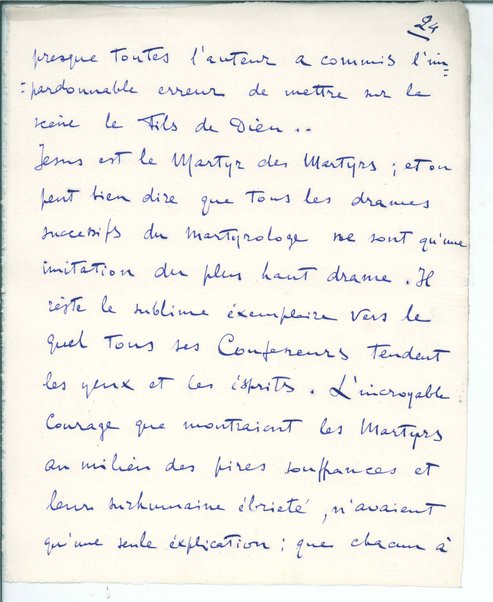 24
presque toutes l'auteur a commis l'im=
=pardonnable erreur de mettre sur la
scène le Fils de Dieu..
Jesus est le Martyr des Martyrs ; et on
peut bien dire que tous les drames
successifs du Martyrologe ne sont qu'une
imitation du plus haut drame. Il
réste le sublime éxemplaire vers le
quel tous ses Confesseurs tendent
les yeux et les ésprits. L'incroyable
Courage que montraient les Martyrs
au milieu des pires souffrances et
leur surhumaine ébrieté, n'avaient
qu'une seule éxplication : que chacun à